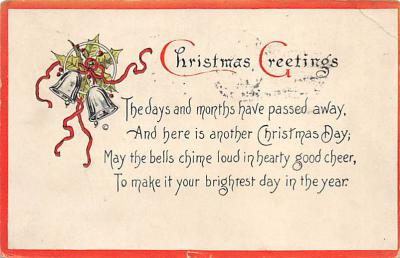 Christmas Greetings
The days and months have passed away,
And here is another Christmas Day;
May the bells chime loud in hearty good cheer,
To make it your brightest day in the year.
©